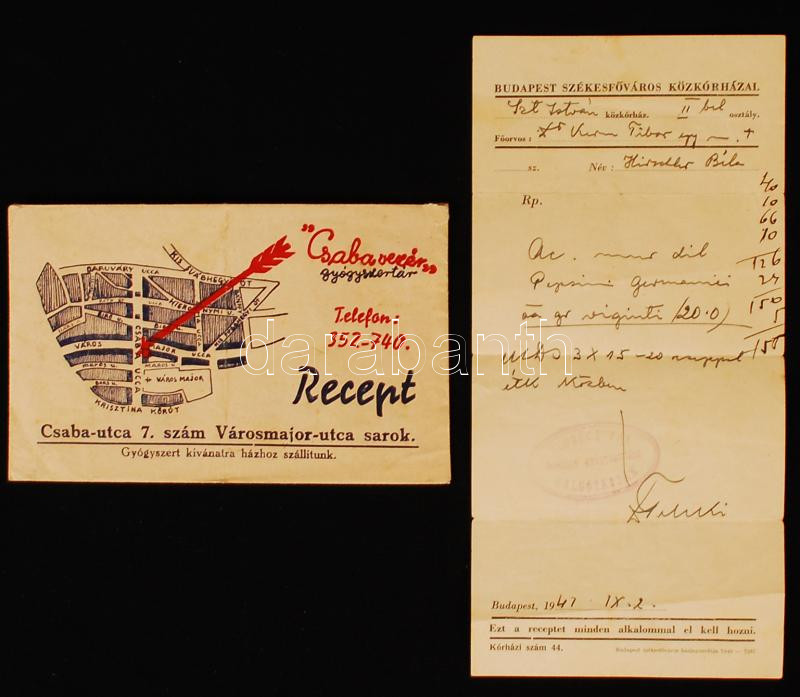 "Csaba vezér"
gyógyszertár
Telefon:
352-740.
Recept
DARUVÁRY UCCA
KIS SVÁBHEGYI ÚT
HIERONYMI U.
CSABA UCCA
VÁROS MAJOR UCCA
MAROS U.
+ VÁROS MAJOR
KRISZTINA KÖRÚT
Csaba-utca 7. szám Városmajor-utca sarok.
Gyógyszert kívánatra házhoz szállítunk.
BUDAPEST SZÉKESFŐVÁROS KÖZKÓRHÁZAI
Szt István közkórház. II bel osztály.
Főorvos: Dr Tibor
sz. Név: Hirschler Béla
40
10
66
10
126
24
150
5
Rp.
Ac. mur dil
Pepsini germanici
āā gr viginti (20.0)
MDS 3 X 15-20 cseppet
étk közben
Budapest, 1947 IX. 2.
Ezt a receptet minden alkalommal el kell hozni.
Kórházi szám 44.
darabanth